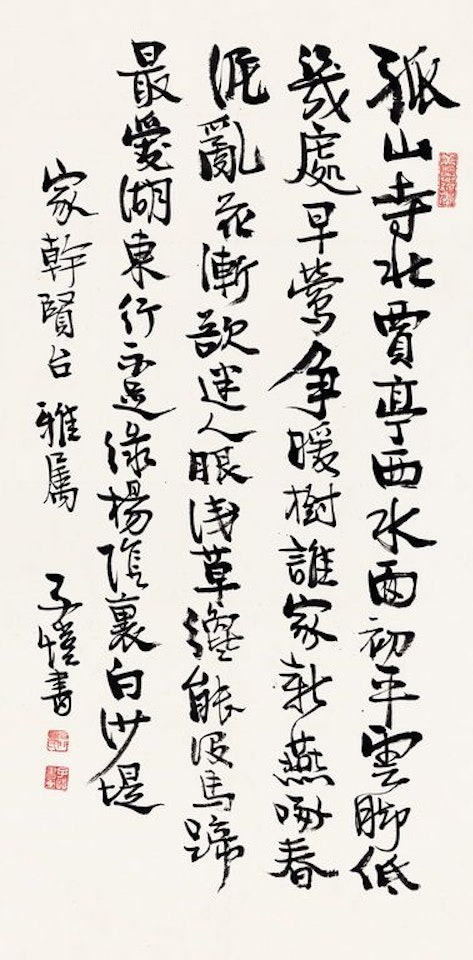 孤山寺北賈亭西水面初平雲脚低
幾處早鶯爭暖樹誰家新燕啄春
泥亂花漸欲迷人眼浅草纔能沒馬蹄
最愛湖東行不足綠楊陰裏白沙堤
家幹賢台 雅属 子愷書